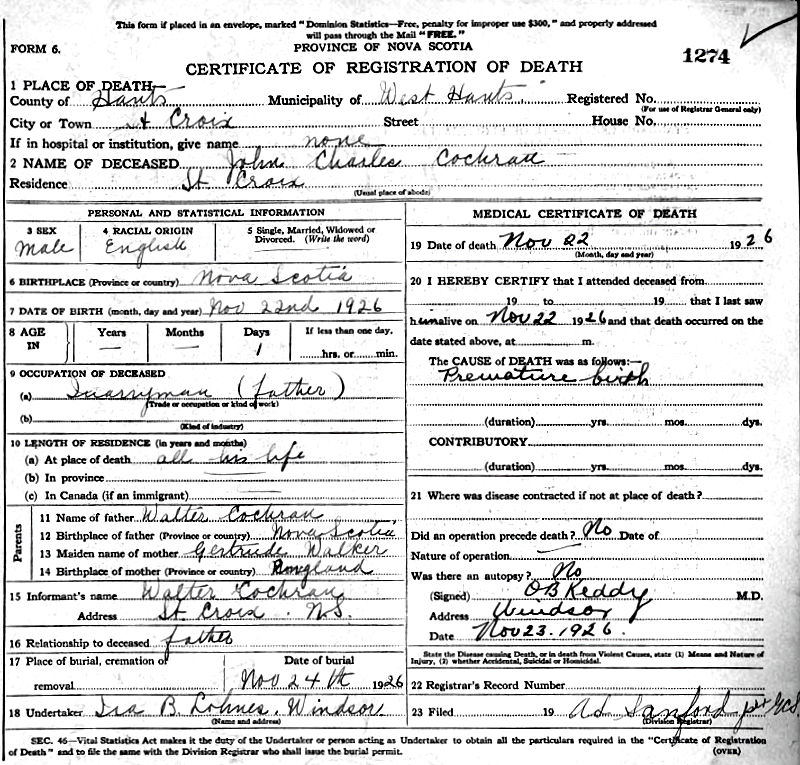 This form if placed in an envelope, marked "Dominion Statistics—Free, penalty for improper use $300," and properly addressed
will pass through the Mail "FREE."
FORM 6. PROVINCE OF NOVA SCOTIA 1274
CERTIFICATE OF REGISTRATION OF DEATH
1 PLACE OF DEATH—
County of Hants Municipality of West Hants Registered No.
(For use of Registrar General only)
City or Town St Croix Street House No.
If in hospital or institution, give name none
2 NAME OF DECEASED John Charles Cochran
Residence St Croix
(Usual place of abode)
PERSONAL AND STATISTICAL INFORMATION
3 SEX 4 RACIAL ORIGIN 5 Single, Married, Widowed or Divorced. (Write the word)
Male English
6 BIRTHPLACE (Province or country) Nova Scotia
7 DATE OF BIRTH (month, day and year) Nov 22nd 1926
8 AGE IN Years Months Days If less than one day.
— — 1 hrs. or min.
9 OCCUPATION OF DECEASED
(a) Quarryman (father)
(Trade or occupation or kind of work)
(b)
(Kind of industry)
10 LENGTH OF RESIDENCE (in years and months)
(a) At place of death all his life
(b) In province
(c) In Canada (if an immigrant)
Parents
11 Name of father Walter Cochran
12 Birthplace of father (Province or country) Nova Scotia
13 Maiden name of mother Gertrude Walker
14 Birthplace of mother (Province or country) England
15 Informant's name Walter Cochran
Address St Croix. N.S.
16 Relationship to deceased father
17 Place of burial, cremation or removal Date of burial
Nov 24th 1926
18 Undertaker Ira B. Lohnes. Windsor
(Name and address)
MEDICAL CERTIFICATE OF DEATH
19 Date of death Nov 22 1926
(Month, day and year)
20 I HEREBY CERTIFY that I attended deceased from
19 to 19 that I last saw
him alive on Nov 22 1926 and that death occurred on the
date stated above, at m.
The CAUSE of DEATH was as follows:—
Premature birth
(duration) yrs. mos. dys.
CONTRIBUTORY
(duration) yrs. mos. dys.
21 Where was disease contracted if not at place of death?
Did an operation precede death? No Date of
Nature of operation —
Was there an autopsy? No
(Signed) O B Keddy M.D.
Address Windsor
Date Nov 23. 1926.
State the Disease causing Death, or in death from Violent Causes, state (1) Means and Nature of
Injury, (2) whether Accidental, Suicidal or Homicidal.
22 Registrar's Record Number
23 Filed 19 A.d. Sanford per
(Division Registrar)
SEC. 46—Vital Statistics Act makes it the duty of the Undertaker or person acting as Undertaker to obtain all the particulars required in the "Certificate of Registration
of Death" and to file the same with the Division Registrar who shall issue the burial permit. (OVER)